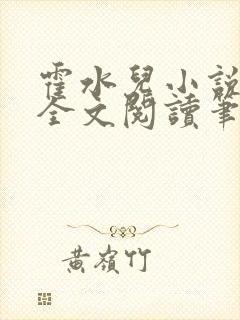 霍水兒小說
全文閱讀筆
黃嶺竹